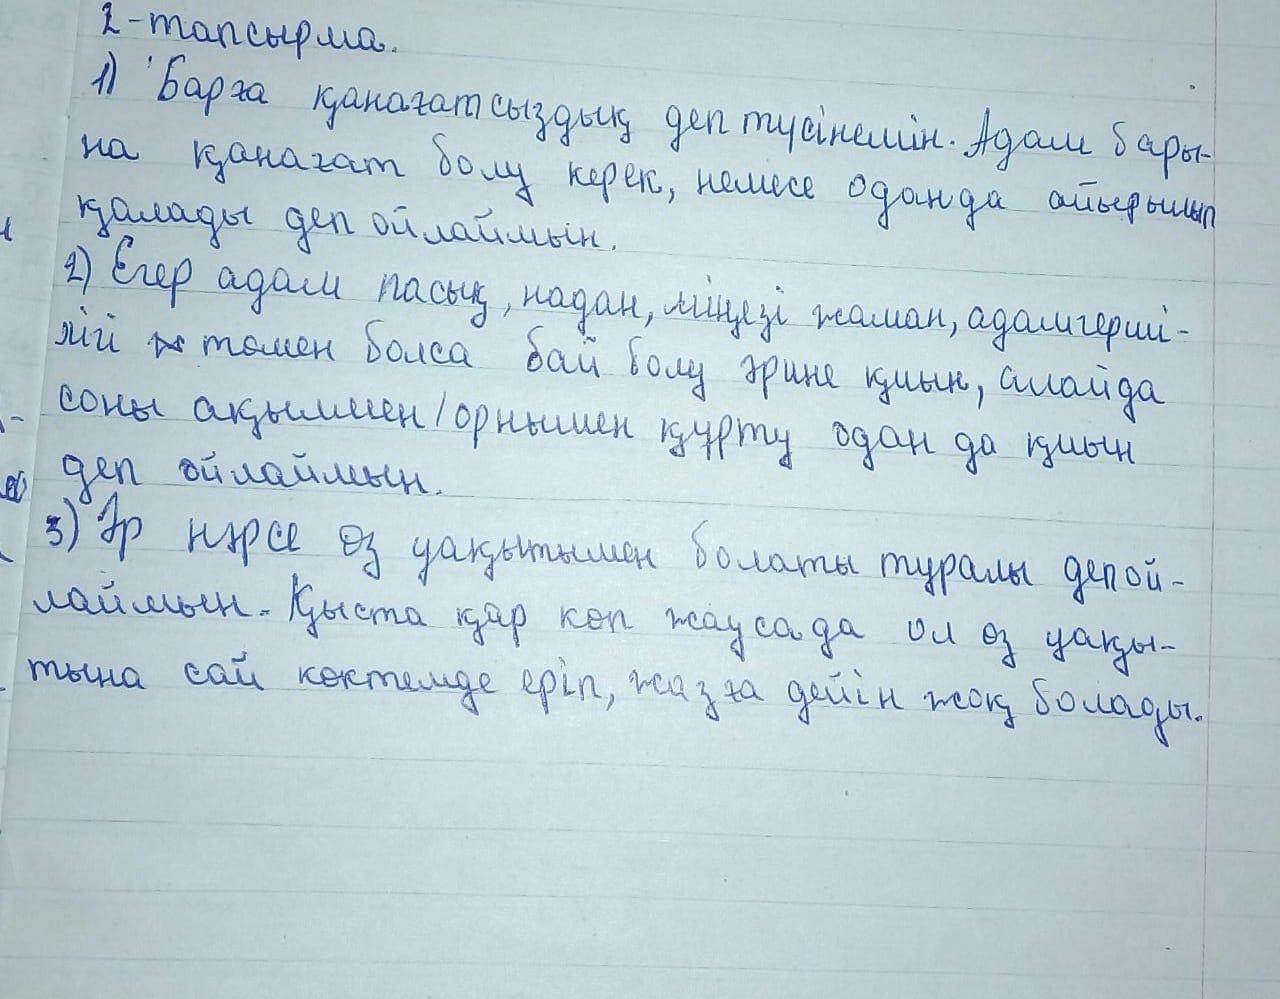 2-тапсырма.
1) Барға қанағатсыздық деп түсінемін. Адам бары-
на қанағат болу керек, немесе оданда айырылып
қалады деп ойлаймын.
2) Егер адам пасық, надан, мінезі жаман, адамгерші-
лігі төмен болса бай болу әрине қиын, алайда
соны ақылмен/орнымен құрту одан да қиын
деп ойлаймын.
3) Әр нәрсе өз уақытымен болаты туралы депой-
лаймын. Қыста қар көп жаусада ол өз уақы-
тына сай көктемде еріп, жазға дейін жоқ болады.